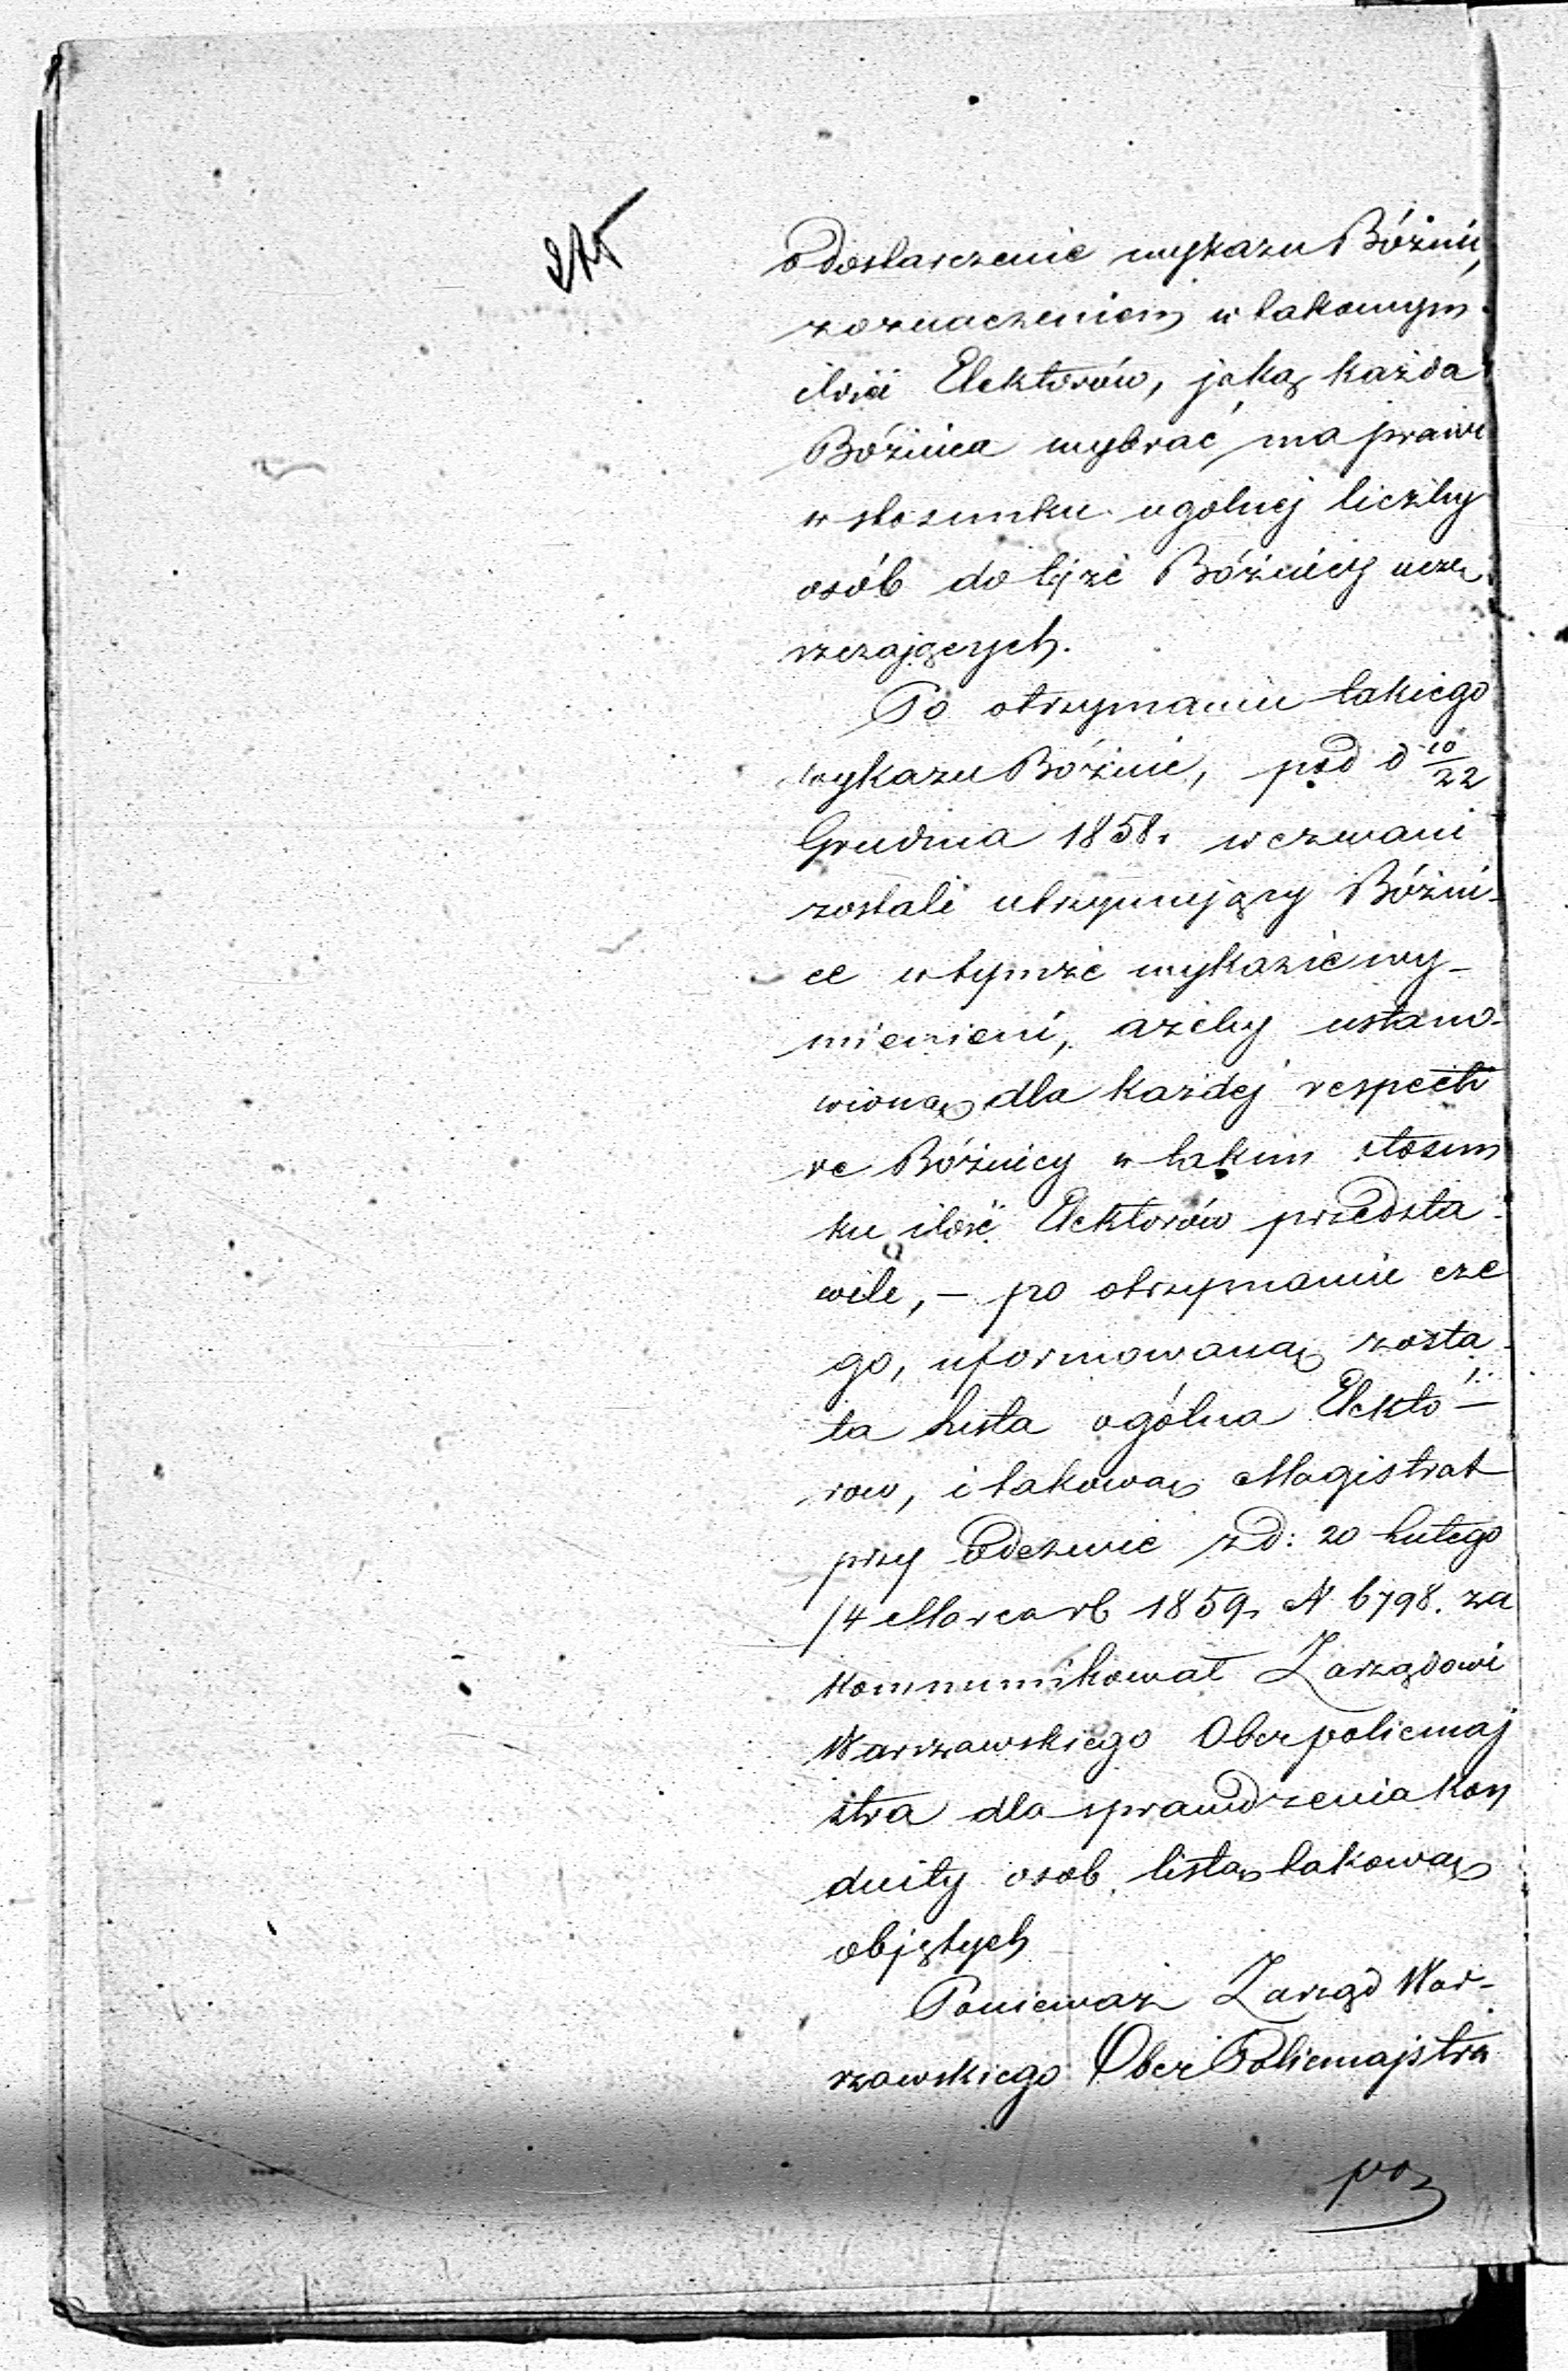 275
o dostarczenie wykazu Bóżnic,
z oznaczeniem w takowym
ilości Elektorów, jaką każda
Bóżnica wybrać ma prawo
w stosunku ogólnej liczby
osób do tejże Bóżnicy uczę
szczających.
Po otrzymaniu takiego
wykazu Bóżnic, pod d 10/22
Grudnia 1858. wezwani
zostali utrzymujący Bóżni-
ce w tymże wykazie wy-
mienieni, ażeby ustano-
wioną dla każdej respecti
ve Bóżnicy w takim stosun
ku ilość Elektorów przedsta-
wili, – po otrzymaniu cze
go, uformowaną zosta-
ła Lista ogólna Elekto-
row, i takową Magistrat
przy Odezwie z d: 20 Lutego
/4 Marca rb 1859. N 6798. za
kommunikował Zarządowi
Warszawskiego Oberpolicmaj
stra dla sprawdzenia kon
duity osob listą takową
objętych
Ponieważ Zarząd War-
szawskiego Ober Policmajstra